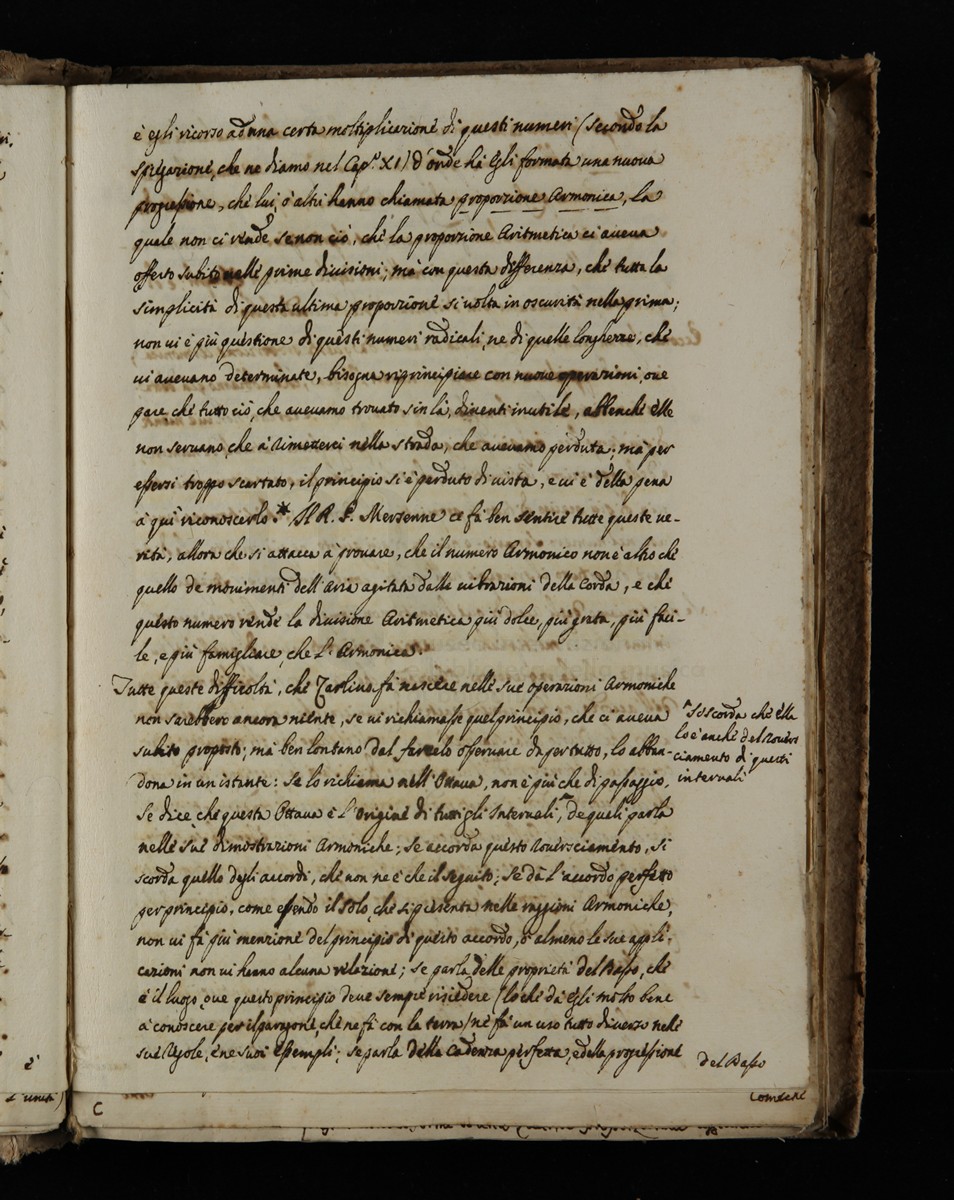 è egli ricorso ad una certa moltiplicazione di questi numeri (secondo la
spiegazione, che ne diamo nel Cap.º XI) d'onde hà Egli formata una nuova
progressione, che lui, ò altri hanno chiamata proporzione Armonica, la
quale non ci rende se non ciò, che la proporzione Aritmetica ci aveva
offerto subito nelle prime divisioni; mà con questa differenza, che tutta la
simplicità di questa ultima proporzione si volta in oscurità nella prima;
non vi è più questione di questi numeri radicali, ne di quelle longhezze, che
vi avevano determinate, bisogna riprincipiare con nuove operazioni, ove
pare, che tutto ciò, che avevamo trovato sin là, diventi inutile, abbenche esse
non servano, che à rimetterci nella strada, che avevamo perduta; mà per
essersi troppo scartato, il principio si è perduto di vista, e vi è della pena
à quì riconoscerlo.* Il R. P. Mersenne ce fà ben sentire tutte queste ve-
rità, allora che si attacca à provare, che il numero Armonico non è altro che
quello de movimenti dell'Aria agitata dalle vibrazioni della Corda, e che
questo numero rende la divisione Aritmetica più dolce, più grata, più faci-
le, e più famigliare, che l'Armonica.
Tutte queste difficoltà, che Zarlino fà nascere nelle sue operazioni Armoniche
non sarebbero ancora niente, se vi richiamasse quel principio, che ci aveva
subito proposto; mà ben lontano dal farcelo osservare da per tutto, lo abban-
dona in un istante: Se lo richiama nell'Ottava, non è più che di passaggio,
Se dice, che questa Ottava è l'Origine di tutti gli Intervalli, de quali parla
nelle sue dimostrazioni Armoniche; se accorda questo roversciamento, si
scorda quello degli accordi, che non ne è che il seguito; Se dà l'accordo perfetto
per principio, come essendo il solo, che si presenta nelle ragioni Armoniche,
non vi fà più menzione del principio di questo accordo, ò almeno le sue appli-
cazioni non vi hanno alcuna relazione; se parla delle proprietà del Basso, che
è il luogo, ove questo principio deve sempre risiedere (lo che dà egli molto bene
à conoscere per il paragone, che ne fà con la terra) ne fà un uso tutto diverso nelle
sue regole, è ne suoi essempli; se parla della Cadenza perfetta, e della progressione
* Si scorda che essa
lo è anche del rovers
ciamento di questi
intervalli
del Basso
C